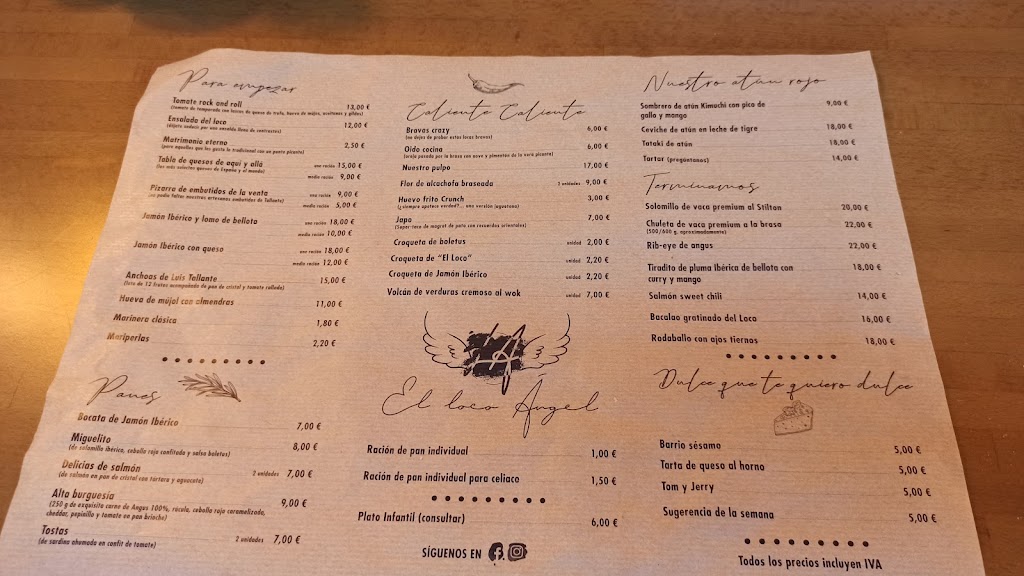 Para empezar
Tomate rock and roll 13,00 €
Ensalada del loco 12,00 €
(déjate seducir por una ensalada llena de contrastes)
Matrimonio eterno 2,50 €
(para aquellos que les gusta lo tradicional con un punto picante)
Tabla de quesos de aquí y allá una ración 15,00 €
(los más selectos quesos de España y el mundo) media ración 9,00 €
Pizarra de embutidos de la venta una ración 9,00 €
(no podía faltar nuestros artesanos embutidos de Tallante) media ración 5,00 €
Jamón Ibérico y lomo de bellota una ración 18,00 €
media ración 10,00 €
Jamón Ibérico con queso una ración 18,00 €
media ración 12,00 €
Anchoas de Luis Tallante 15,00 €
(lata de 12 frutos acompañada de pan de cristal y tomate rallado)
Hueva de mújol con almendras 11,00 €
Marinera clásica 1,80 €
Mariperlas 2,20 €
Panes
Bocata de Jamón Ibérico 7,00 €
Miguelito 8,00 €
(de solomillo ibérico, cebolla roja confitada y salsa boletus)
Delicias de salmón 2 unidades 7,00 €
(de salmón en pan de cristal con tártara y aguacate)
Alta burguesía 9,00 €
(250 g de exquisita carne de Angus 100%, rúcula, cebolla roja caramelizada,
cheddar, pepinillo y tomate en pan brioche)
Tostas 2 unidades 7,00 €
(de sardina ahumada en confit de tomate)
Caliente Caliente
Bravas crazy 6,00 €
(no dejes de probar estas locas bravas)
Oído cocina 6,00 €
(oreja pasada por la brasa con nuestro y pimentón de la vera picante)
Nuestro pulpo 17,00 €
Flor de alcachofa braseada 2 unidades 9,00 €
Huevo frito Crunch 3,00 €
(¿siempre apetece verdad?... una versión japuntana)
Japo 7,00 €
(Super-taco de magret de pato con recuerdos orientales)
Croqueta de boletus unidad 2,00 €
Croqueta de "El Loco" unidad 2,20 €
Croqueta de Jamón Ibérico unidad 2,20 €
Volcán de verduras cremoso al wok unidad 7,00 €
LA
El loco Ángel
Ración de pan individual 1,00 €
Ración de pan individual para celiaco 1,50 €
Plato Infantil (consultar) 6,00 €
SÍGUENOS EN
Nuestro atún rojo
Sombrero de atún Kimuchi con pico de
gallo y mango 9,00 €
Ceviche de atún en leche de tigre 18,00 €
Tataki de atún 18,00 €
Tartar (pregúntanos) 14,00 €
Terminamos
Solomillo de vaca premium al Stilton 20,00 €
Chuleta de vaca premium a la brasa 22,00 €
(500/600 g. aproximadamente)
Rib-eye de angus 22,00 €
Tiradito de pluma Ibérica de bellota con
curry y mango 18,00 €
Salmón sweet chili 14,00 €
Bacalao gratinado del Loco 16,00 €
Rodaballo con ajos tiernos 18,00 €
Dulce que te quiero dulce
Barrio sésamo 5,00 €
Tarta de queso al horno 5,00 €
Tom y Jerry 5,00 €
Sugerencia de la semana 5,00 €
Todos los precios incluyen IVA